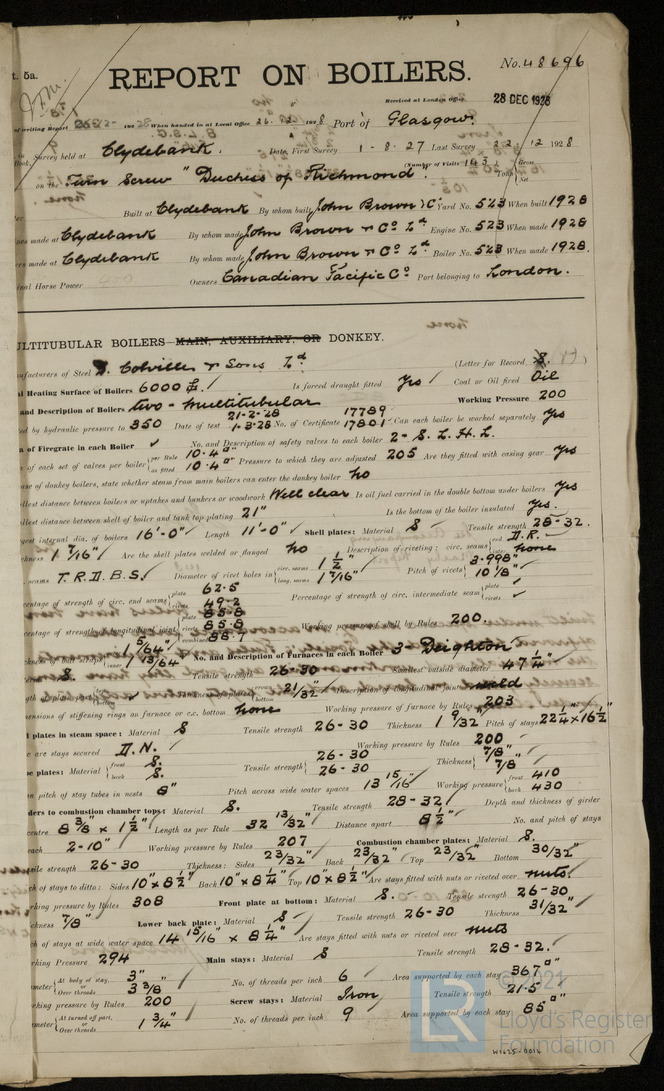 t. 5a.
REPORT ON BOILERS.
No. 48696
Received at London Office
28 DEC 1928
of writing Report 192 When handed in at Local Office 26. 12. 1928 Port of Glasgow.
Survey held at Clydebank. Date, First Survey 1-8.27 Last Survey 22. 12 1928
(Number of Visits 143) Gross
on the Twin Screw "Duchess of Richmond". Tons Net
Built at Clydebank By whom built John Brown & Co Yard No. 523 When built 1928
nes made at Clydebank By whom made John Brown & Co Ld Engine No. 523 When made 1928
rs made at Clydebank By whom made John Brown & Co Ld Boiler No. 523 When made 1928.
nal Horse Power Owners Canadian Pacific Co Port belonging to London.
ULTITUBULAR BOILERS MAIN, AUXILIARY, OR DONKEY.
nufacturers of Steel D. Colville & Sons Ld (Letter for Record S.)
al Heating Surface of Boilers 6000 Is forced draught fitted Yes Coal or Oil fired Oil
and Description of Boilers two - multitubular Working Pressure 200
ed by hydraulic pressure to 350 Date of test 21-2-28 1-3-28 No. of Certificate 17789 17801 Can each boiler be worked separately Yes
a of Firegrate in each Boiler ✓ No. and Description of safety valves to each boiler 2- S. L. H. L.
a of each set of valves per boiler per Rule 10.4" as fitted 10.4" Pressure to which they are adjusted 205 Are they fitted with easing gear Yes
ase of donkey boilers, state whether steam from main boilers can enter the donkey boiler No
llest distance between boilers or uptakes and bunkers or woodwork Well clear Is oil fuel carried in the double bottom under boilers Yes
llest distance between shell of boiler and tank top plating 21" Is the bottom of the boiler insulated Yes.
gest internal dia. of boilers 16'-0" Length 11'-0" Shell plates: Material S Tensile strength 28-32.
ckness 1 7/16" Are the shell plates welded or flanged No Description of riveting: circ. seams end D.R. inter. none
seams T.R.D.B.S. Diameter of rivet holes in circ. seams 1 1/2" long. seams 1 7/16" Pitch of rivets 3.998" 10 1/8"
centage of strength of circ. end seams plate 62.5 rivets 49.2 Percentage of strength of circ. intermediate seam plate rivets
centage of strength of longitudinal joint plate 85.8 rivets 85.8 combined 88.7 Working pressure of shell by Rules 200.
No. and Description of Furnaces in each Boiler 3 Deighton
S. Tensile strength 26-30 Smallest outside diameter 47 1/4"
bottom 21/32" Description of longitudinal joint weld
ensions of stiffening rings on furnace or c.c. bottom none Working pressure of furnace by Rules 203
l plates in steam space: Material S Tensile strength 26-30 Thickness 1 9/32" Pitch of stays 22 1/4" x 16 1/2"
are stays secured D.N. Working pressure by Rules 200
e plates: Material front S. back S. Tensile strength 26-30 26-30 Thickness 7/8" 7/8
n pitch of stay tubes in nests 8" Pitch across wide water spaces 13 15/16" Working pressure front 410 back 430
ders to combustion chamber tops: Material S. Tensile strength 28-32 Depth and thickness of girder
centre 8 3/8 x 1 1/2" Length as per Rule 32 13/32" Distance apart 8 1/2" No. and pitch of stays
each 2-10" Working pressure by Rules 207 Combustion chamber plates: Material S.
sile strength 26-30 Thickness: Sides 23/32" Back 23/32" Top 23/32" Bottom 30/32"
ch of stays to ditto: Sides 10" x 8 1/2" Back 10" x 8 1/4" Top 10" x 8 1/2" Are stays fitted with nuts or riveted over nuts.
rking pressure by Rules 308 Front plate at bottom: Material S. Tensile strength 26-30
ckness 7/8" Lower back plate: Material S Tensile strength 26-30 Thickness 31/32"
ch of stays at wide water space 14 15/16" x 8 1/4" Are stays fitted with nuts or riveted over nuts
rking Pressure 294 Main stays: Material S Tensile strength 28-32.
meter At body of stay, 3" Over threads 3 3/8" No. of threads per inch 6 Area supported by each stay 367"
rking pressure by Rules 200 Screw stays: Material Iron Tensile strength 21.5
meter At turned off part, or Over threads 1 3/4" No. of threads per inch 9 Area supported by each stay 85"
© 2021
LR
Lloyd's Register
Foundation
W1625-0016